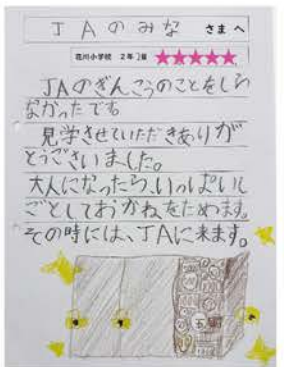 JAのみなさまへ
花川小学校 2年3組 ★★★★★
JAのぎんこうのことをしら
なかったです
見学させていただきありが
とうございました。
大人になったら、いっぱいし
ごとしておかねをためます。
その時には、JAに来ます。